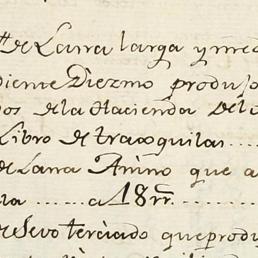 de Lana larga y med
diente Diezmo produjo
os de la Hacienda de
Libro de trasquilas....
de Lana Anino que a
la ...... a 18 rr.
de sevo terciado que produ